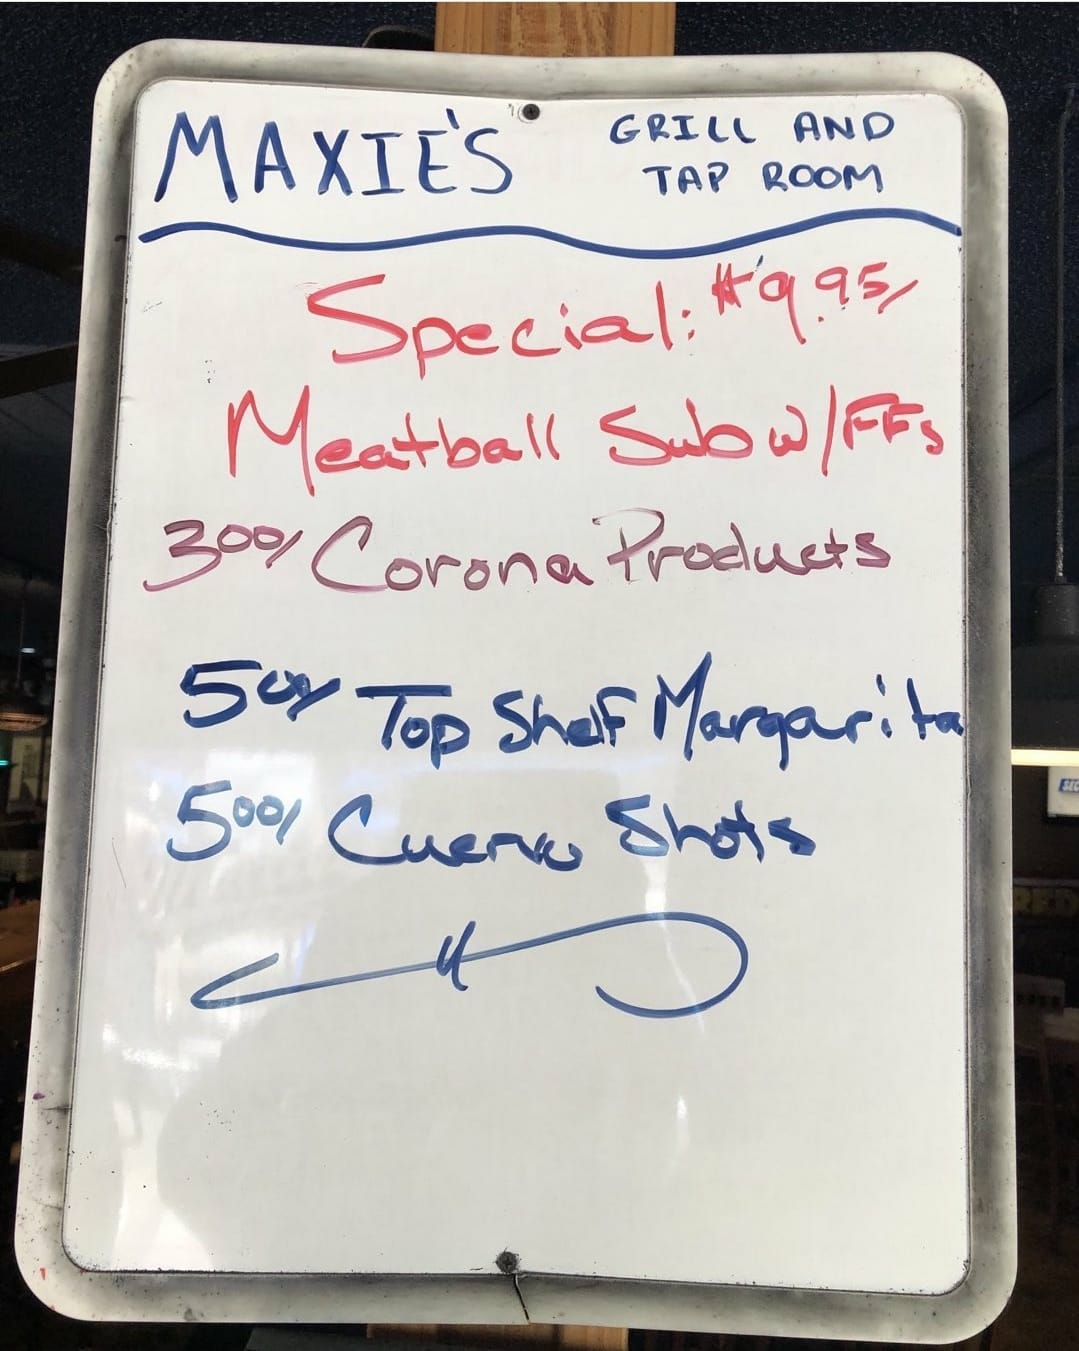 MAXIE'S
GRILL AND
TAP ROOM
Special: $9.95/
Meatball Sub w/FFs
300/ Corona Products
500/ Top Shelf Margarita
500/ Cuervo Shots